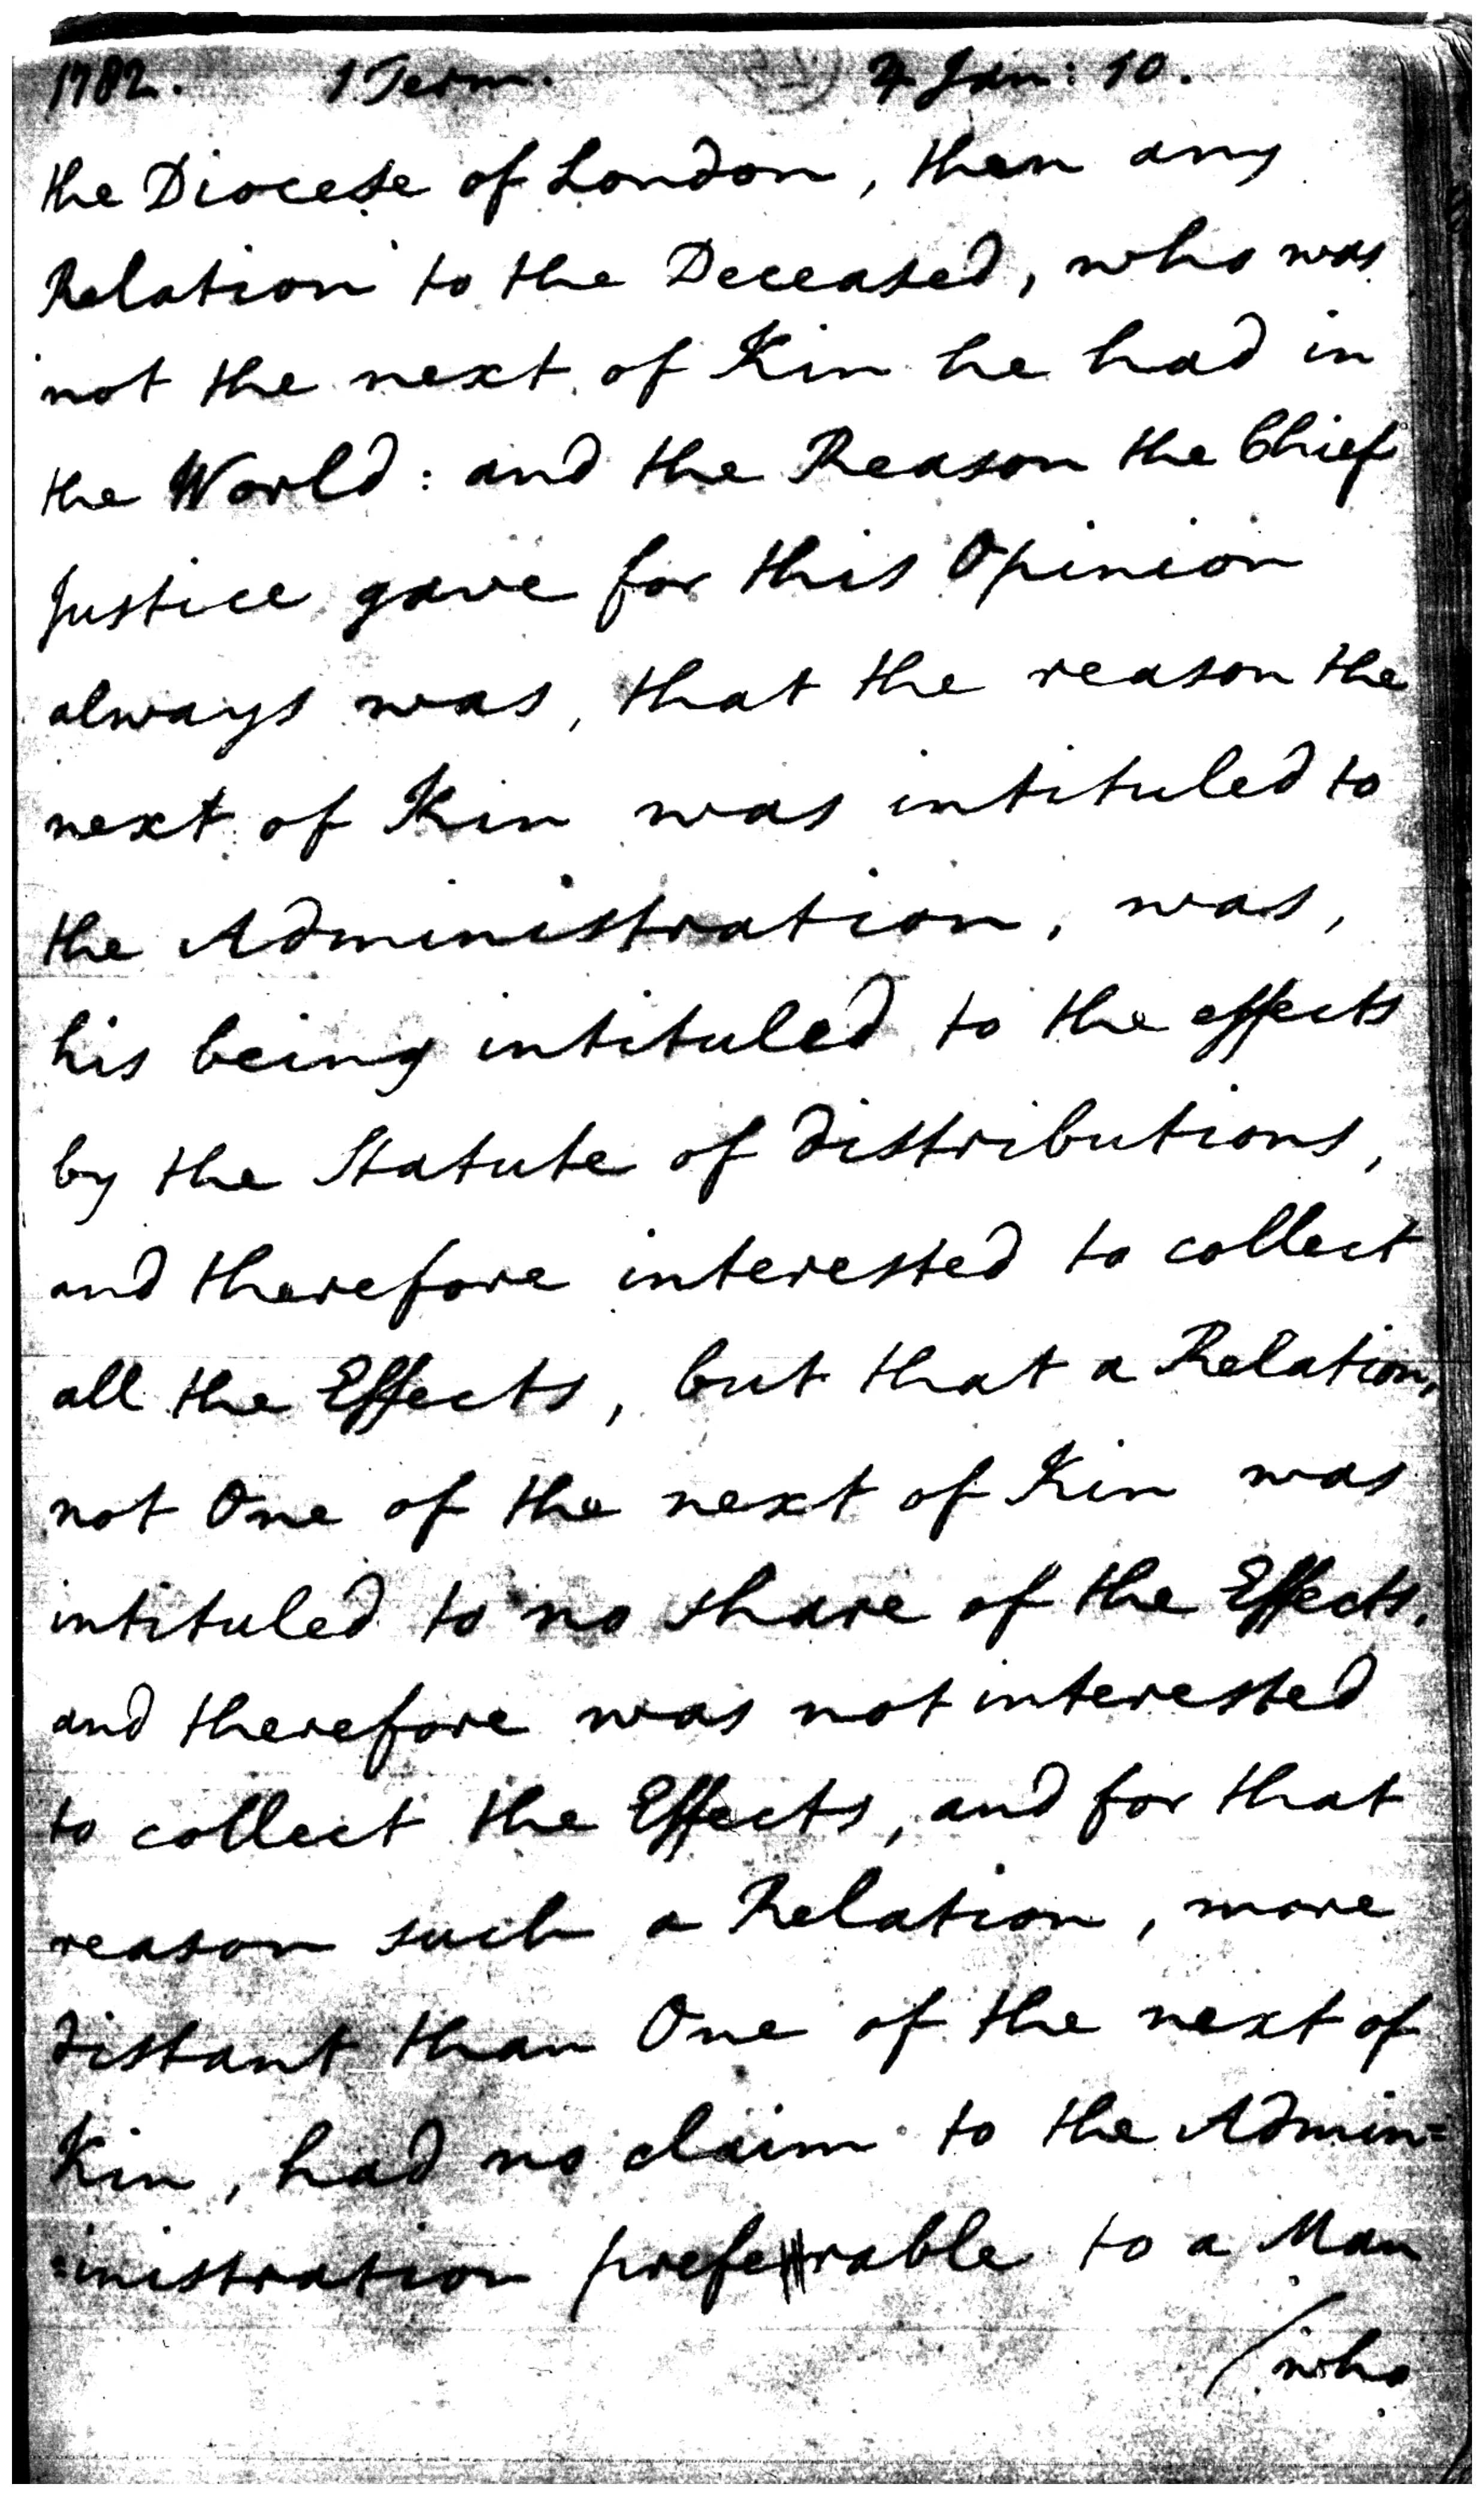 1782. 1 Term. 4 Jan: 10.
the Diocese of London, then any
Relation to the Deceased, who was
not the next of Kin he had in
the World: and the Reason the Chief
Justice gave for this Opinion
always was, that the reason the
next of Kin was intituled to
the Administration, was,
his being intituled to the effects
by the Statute of distributions,
and therefore interested to collect
all the Effects, but that a Relation,
not One of the next of Kin was
intituled to no share of the Effects,
and therefore was not interested
to collect the Effects, and for that
reason such a Relation, more
distant than One of the next of
Kin, had no claim to the Admin=
=inistration preferable to a Man
/who